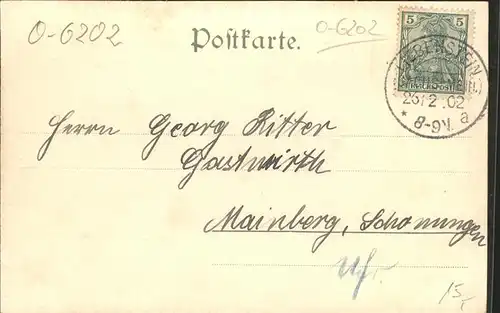 O-6202
Postkarte.
O-6202
5 5
REICHSPOST
LIEBENSTEIN
26/2.02
* 8-9V. a
Herrn Georg Ritter
Gastwirth
Mainberg, Schonungen
15,